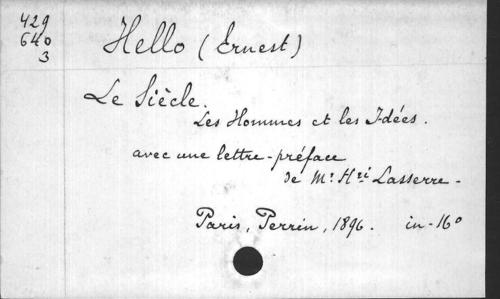 429
640
3
Hello (Ernest)
Le Siècle.
Les Hommes et les Idées.
avec une lettre-préface
de Mr Hri Lasserre -
Paris, Perrin, 1896. in-16o